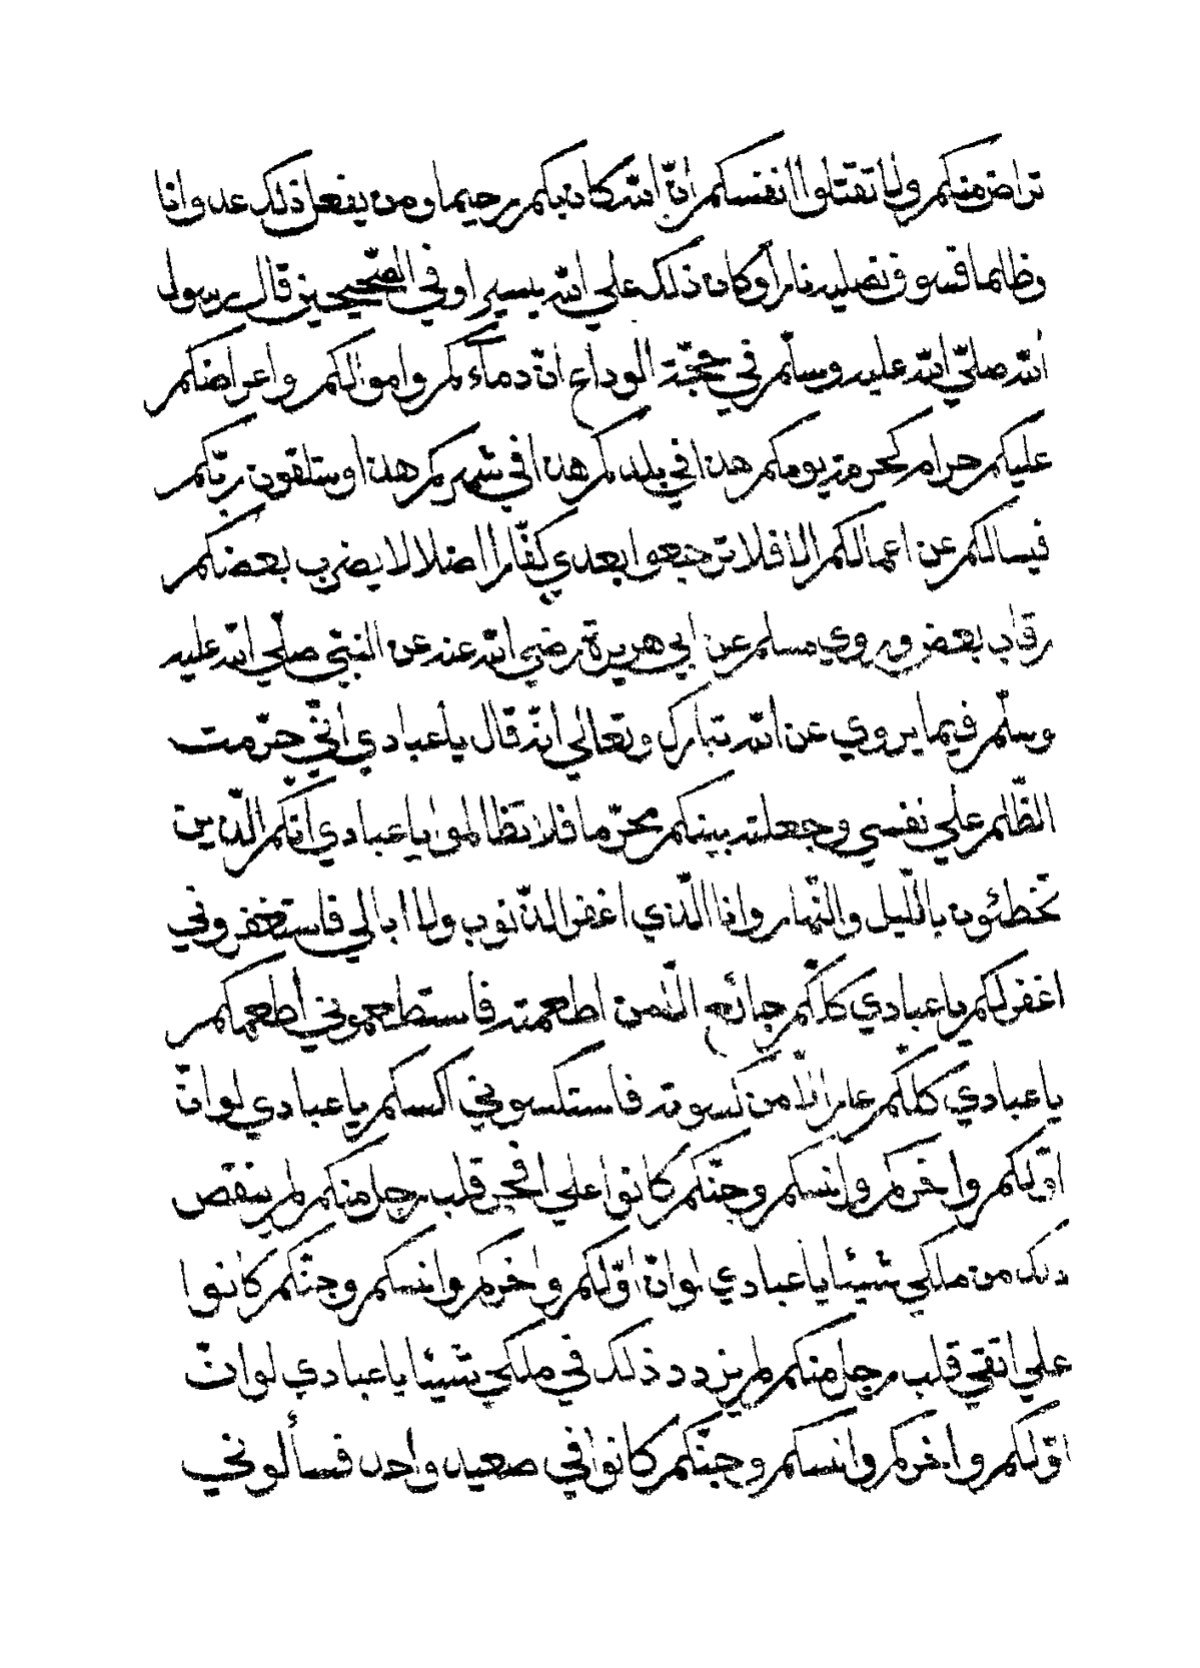 تراض منكم ولا تقتلوا انفسكم انّ الله كان بكم رحيما ومن يفعل ذلك عدوانا
وظلما فسوف نصليه نارا وكان ذلك علي الله يسيرا وفي الصّحيحين قال رسول
الله صلّي الله عليه وسلّم في حجّة الوداع انّ دماءكم واموالكم واعراضكم
عليكم حرام كحرمة يومكم هذا في بلدكم هذا في شهركم هذا وستلقون ربّكم
فيسالكم عن اعمالكم الا فلا ترجعوا بعدي كفّارا اضلالا يضرب بعضكم
رقاب بعض وروي مسلم عن ابي هريرة رضي الله عنه عن النبيّ صلّي الله عليه
وسلّم فيما يروي عن الله تبارك وتعالي انّه قال يا عبادي انّي حرّمت
الظّلم علي نفسي وجعلته بينكم محرّما فلا تظالموا يا عبادي انّكم الّذين
تخطئون بالّليل والنّهار وانا الّذي اغفر الذّنوب ولا ابالي فاستغفروني
اغفر لكم يا عبادي كلّكم جائع الّا من اطعمته فاستطعموني أطعمكم
يا عبادي كلّكم عار الّا من كسوته فاستكسوني اكسكم يا عبادي لو انّ
اوّلكم واخركم وانسكم وجنّكم كانوا علي افجر قلب رجل منكم لم ينقص
ذلك من ملكي شيئا يا عبادي لو انّ اوّلكم واخركم وانسكم وجنّكم كانوا
علي اتقي قلب رجل منكم لم يزدد ذلك في ملكي شيئا يا عبادي لو انّ
اوّلكم واخركم وانسكم وجنّكم كانوا في صعيد واحد فسألوني